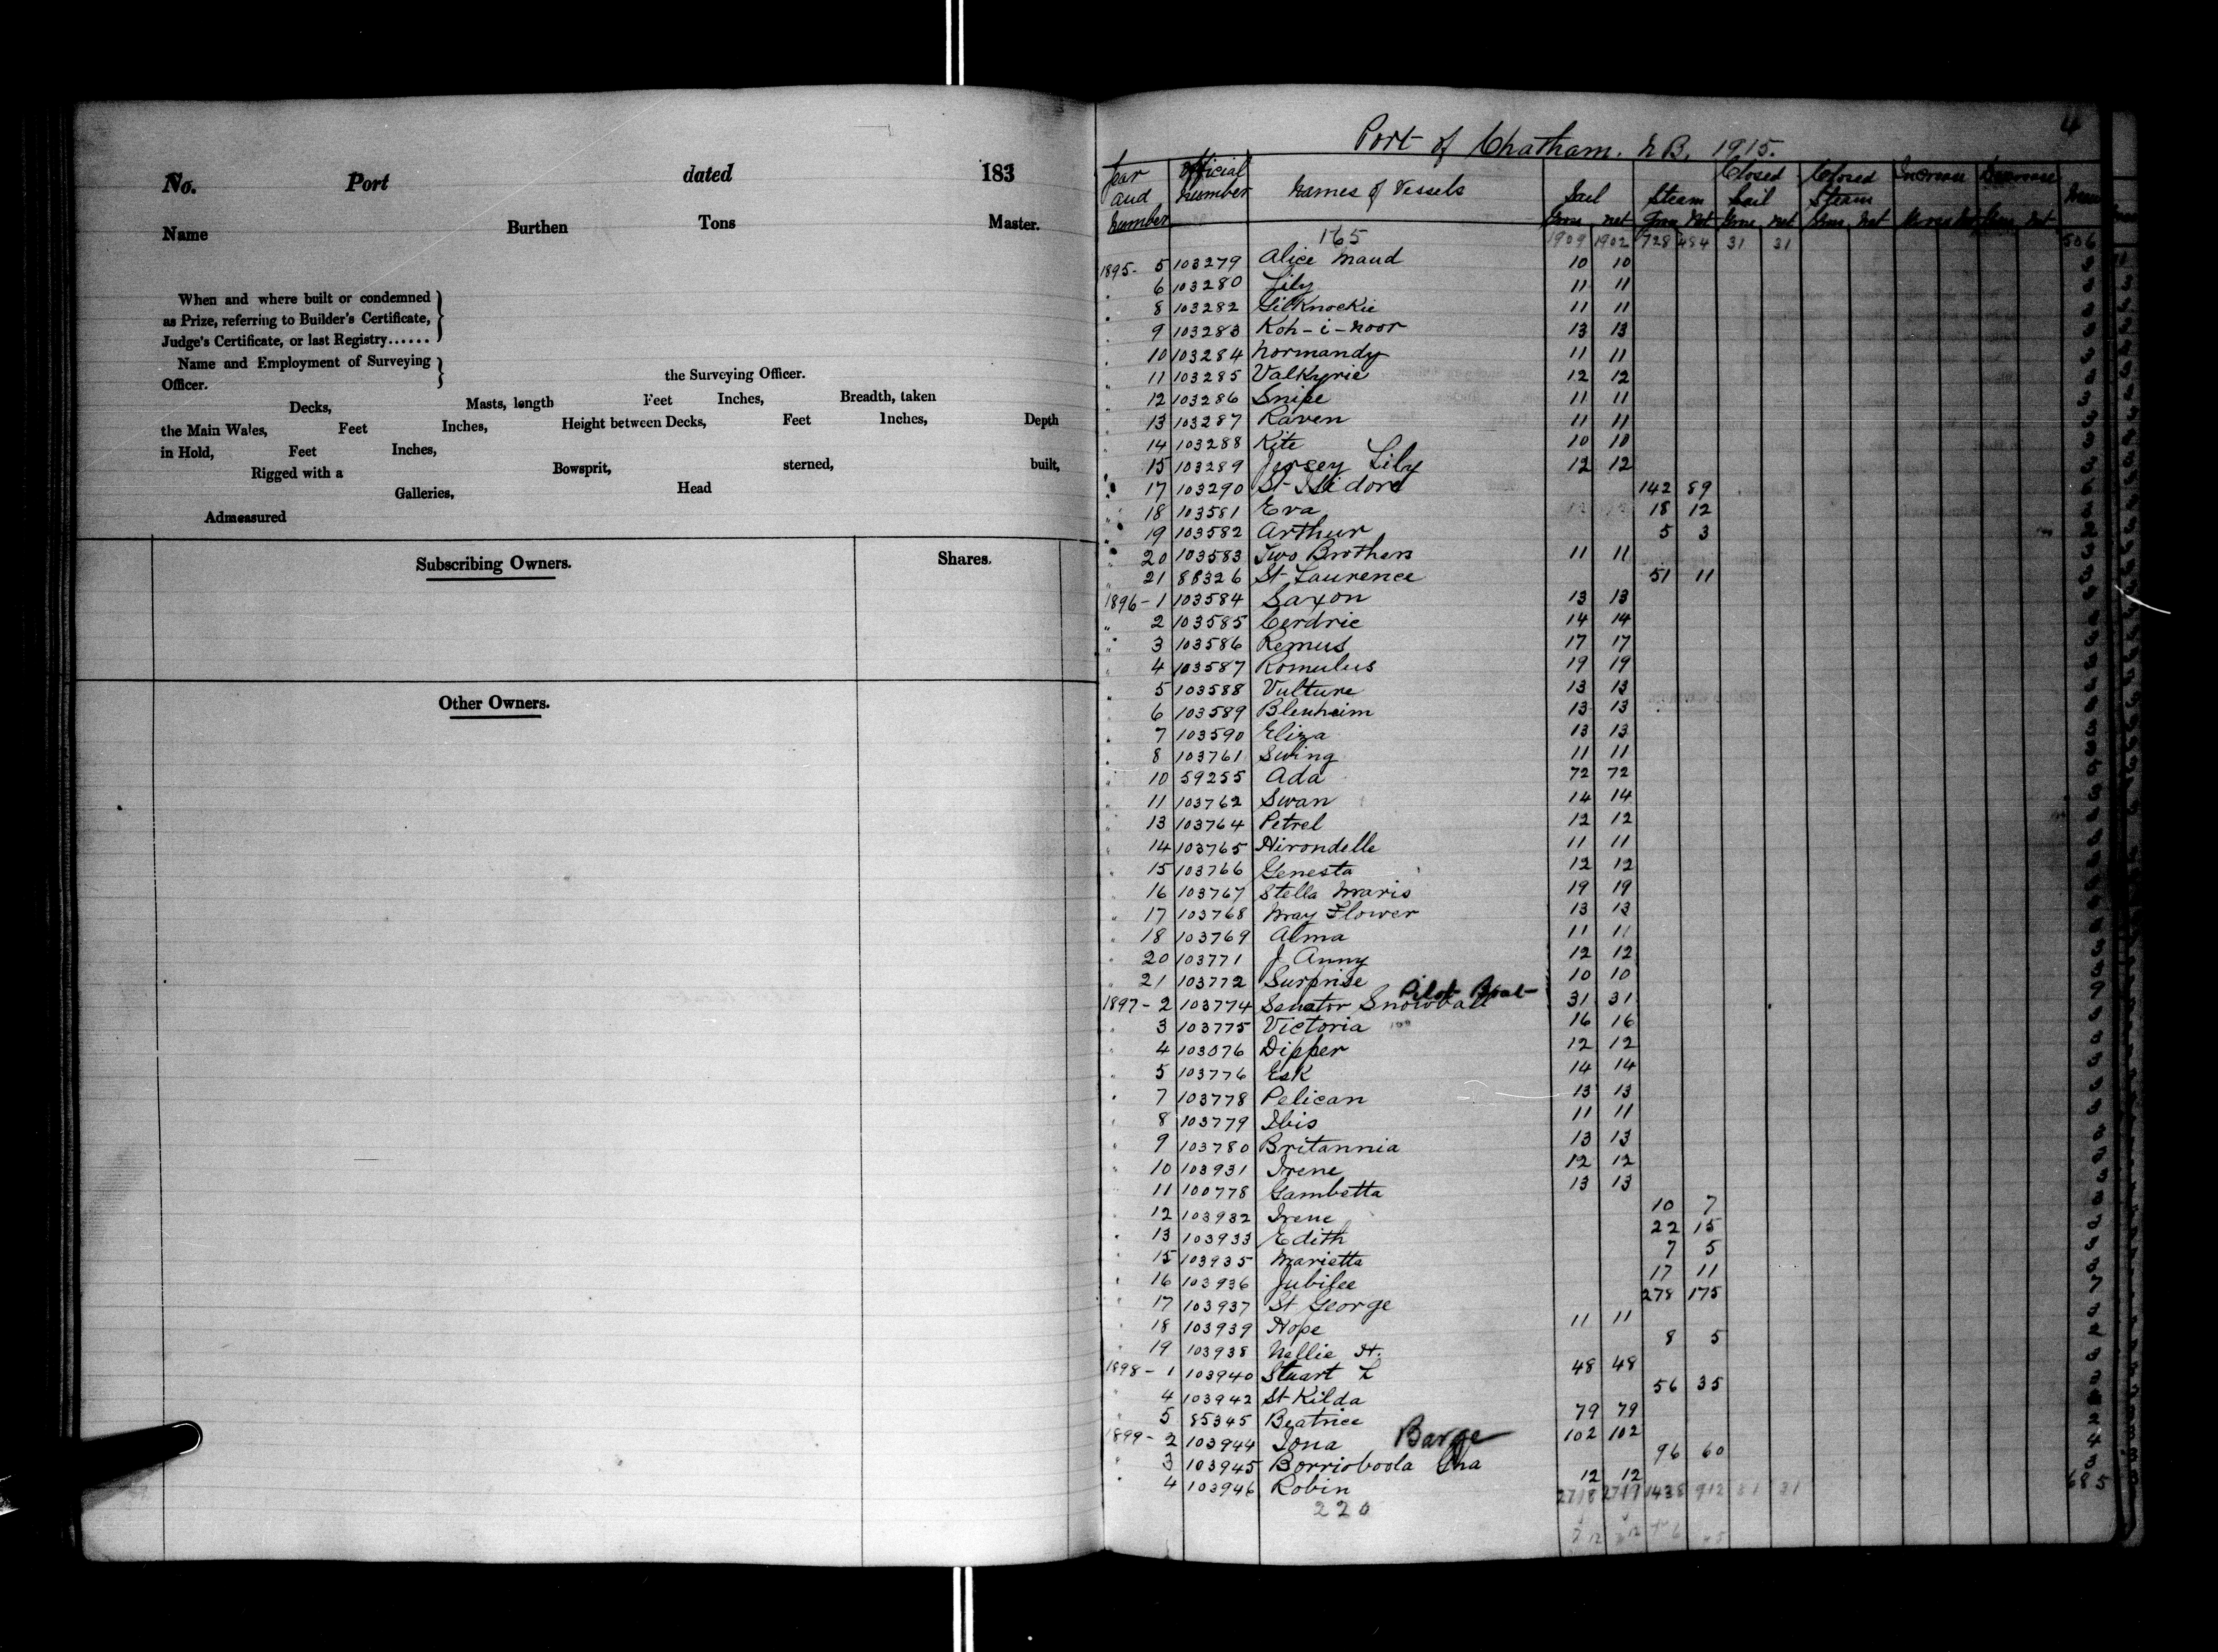 No. Port dated 183
Name Burthen Tons Master.
When and where built or condemned
as Prize, referring to Builder's Certificate,
Judge's Certificate, or last Registry......
Name and Employment of Surveying
Officer. the Surveying Officer.
Decks, Masts, length Feet Inches, Breadth, taken
the Main Wales, Feet Inches, Height between Decks, Feet Inches, Depth
in Hold, Feet Inches,
Rigged with a Bowsprit, sterned, built,
Galleries, Head
Admeasured
Subscribing Owners. Shares.
Other Owners.
4
Port of Chatham. N.B. 1915.
Year and Number Official Number Names of Vessels Sail Steam Closed Sail Closed Steam Increase Decrease
165 1909 1902 728 484 31 31 506
1895- 5 103279 Alice Maud 10 10
6 103280 Lily 11 11
8 103282 Gilknockie 11 11
9 103283 Koh-i-noor 13 13
10 103284 Normandy 11 11
11 103285 Valkyrie 12 12
12 103286 Snipe 11 11
13 103287 Raven 11 11
14 103288 Kite 10 10
15 103289 Jersey Lily 12 12
17 103290 St Isidore 142 89
18 103581 Eva 18 12
19 103582 Arthur 5 3
20 103583 Two Brothers 11 11
21 88326 St Laurence 51 11
1896-1 103584 Saxon 13 13
" 2 103585 Cerdric 14 14
" 3 103586 Remus 17 17
4 103587 Romulus 19 19
5 103588 Vulture 13 13
6 103589 Blenheim 13 13
7 103590 Eliza 13 13
8 103761 Swing 11 11
10 59255 Ada 72 72
11 103762 Swan 14 14
13 103764 Petrel 12 12
14 103765 Hirondelle 11 11
15 103766 Genesta 12 12
16 103767 Stella Maris 19 19
17 103768 May Flower 13 13
18 103769 Alma 11 11
20 103771 J Anny 12 12
21 103772 Surprise 10 10
1897-2 103774 Senator Snowball Pilot Boat 31 31
3 103775 Victoria 16 16
4 103076 Dipper 12 12
5 103776 Esk 14 14
7 103778 Pelican 13 13
8 103779 Ibis 11 11
9 103780 Britannia 13 13
10 103931 Irene 12 12
11 100778 Gambetta 13 13
12 103932 Irene 10 7
13 103933 Edith 22 15
15 103935 Marietta 7 5
16 103936 Jubilee 17 11
17 103937 St George 278 175
18 103939 Hope 11 11
19 103938 Nellie H. 8 5
1898-1 103940 Stuart L 48 48
4 103942 St Kilda 56 35
5 85345 Beatrice 79 79
1899-2 103944 Iona Barge 102 102
3 103945 Borrioboola Gha 96 60
4 103946 Robin 12 12
220 1438 912 31 31 685